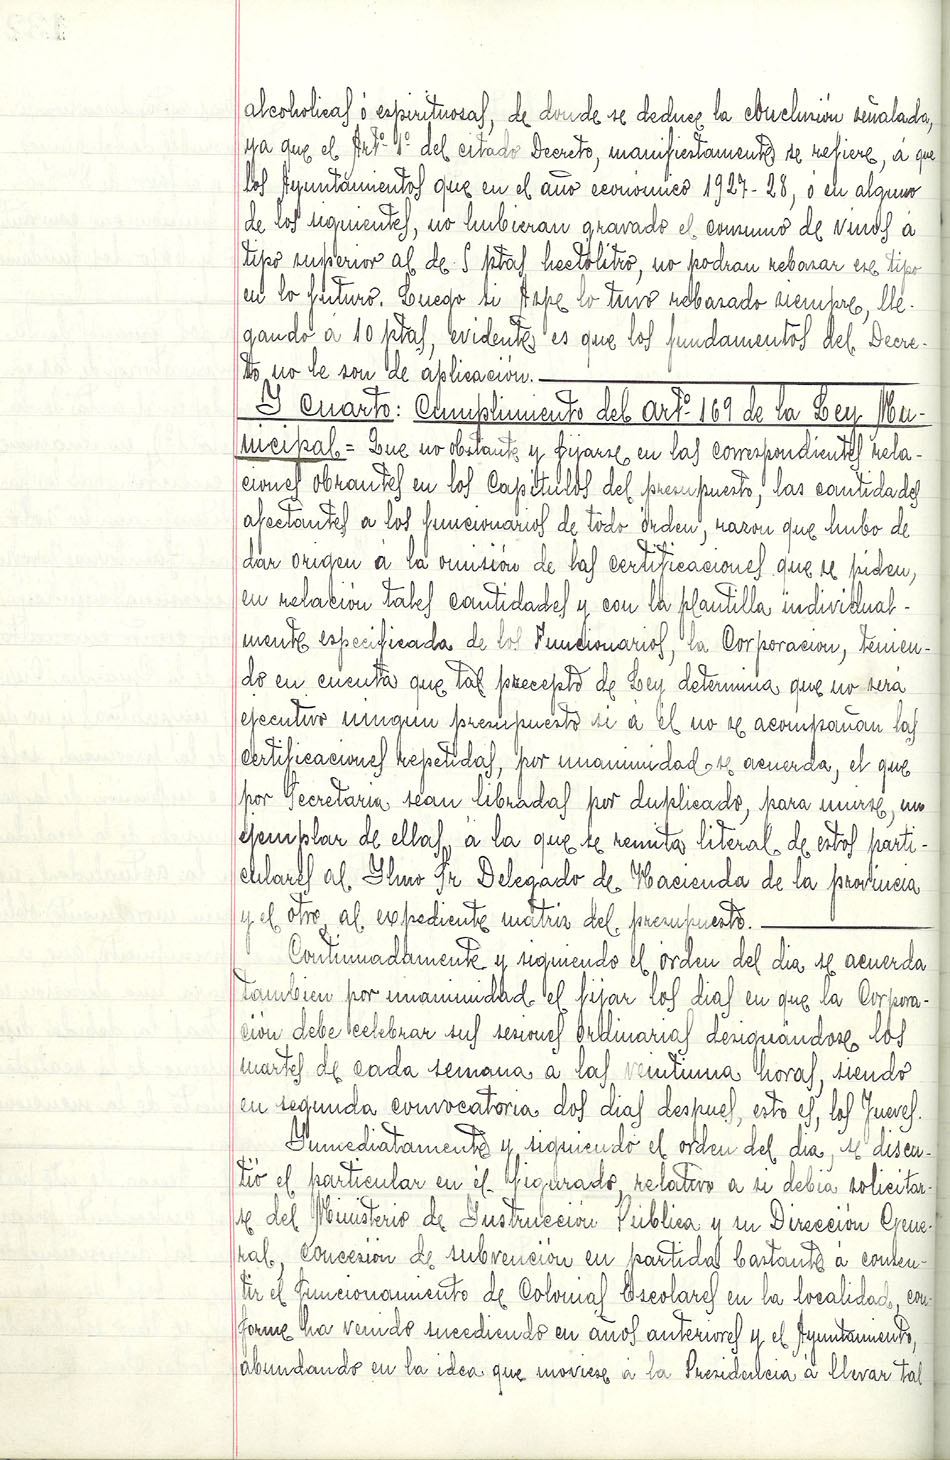 alcoholicas ó espirituosas, de donde se deduce la conclusión señalada,
ya que el Artº 1º del citado Decreto, manifiestamente se refiere, á que
los Ayuntamientos que en el año económico 1927-28, ó en alguno
de los siguientes, no hubieran gravado el consumo de vinos á
tipo superior al de 5 ptas hectolitro, no podran rebasar ese tipo
en lo futuro. Luego si Aspe lo tuvo rebasado siempre, lle-
gando á 10 ptas, evidente es que los fundamentos del Decre-
to no le son de aplicación.
Y cuarto: Cumplimiento del artº 169 de la Ley Mu-
nicipal = Que no obstante y fijarse en las correspondientes rela-
ciones obrantes en los Capítulos del presupuesto, las cantidades
afectantes a los funcionarios de todo órden, razon que hubo de
dar origen á la omisión de las certificaciones que se piden,
en relación tales cantidades y con la plantilla individual-
mente especificada de los Funcionarios, la Corporacion, tenien-
do en cuenta que tal precepto de Ley determina que no será
ejecutivo ningun presupuesto si á él no se acompañan las
certificaciones repetidas, por unanimidad se acuerda, el que
por Secretaria sean libradas por duplicado, para unirse, un
ejemplar de ellas, á la que se remita literal de estos parti-
culares al Ylmo Sr Delegado de Hacienda de la provincia
y el otro, al expediente matriz del presupuesto.
Continuadamente y siguiendo el órden del dia se acuerda
tambien por unanimidad el fijar los dias en que la Corpora-
ción debe celebrar sus sesiones ordinarias designándose los
martes de cada semana a las veintiuna horas, siendo
en segunda convocatoria dos dias despues, esto es, los Jueves.
Ynmediatamente y siguiendo el orden del dia, se discu-
tió el particular en él figurado, relativo a si debia solicitar-
se del Ministerio de Ynstrucción Pública y su Dirección Gene-
ral, concesión de subvención en partida bastante á consen-
tir el funcionamiento de Colonias Escolares en la localidad, con-
forme ha venido sucediendo en años anteriores y el Ayuntamiento,
abundando en la idea que moviese á la Presidencia á llevar tal